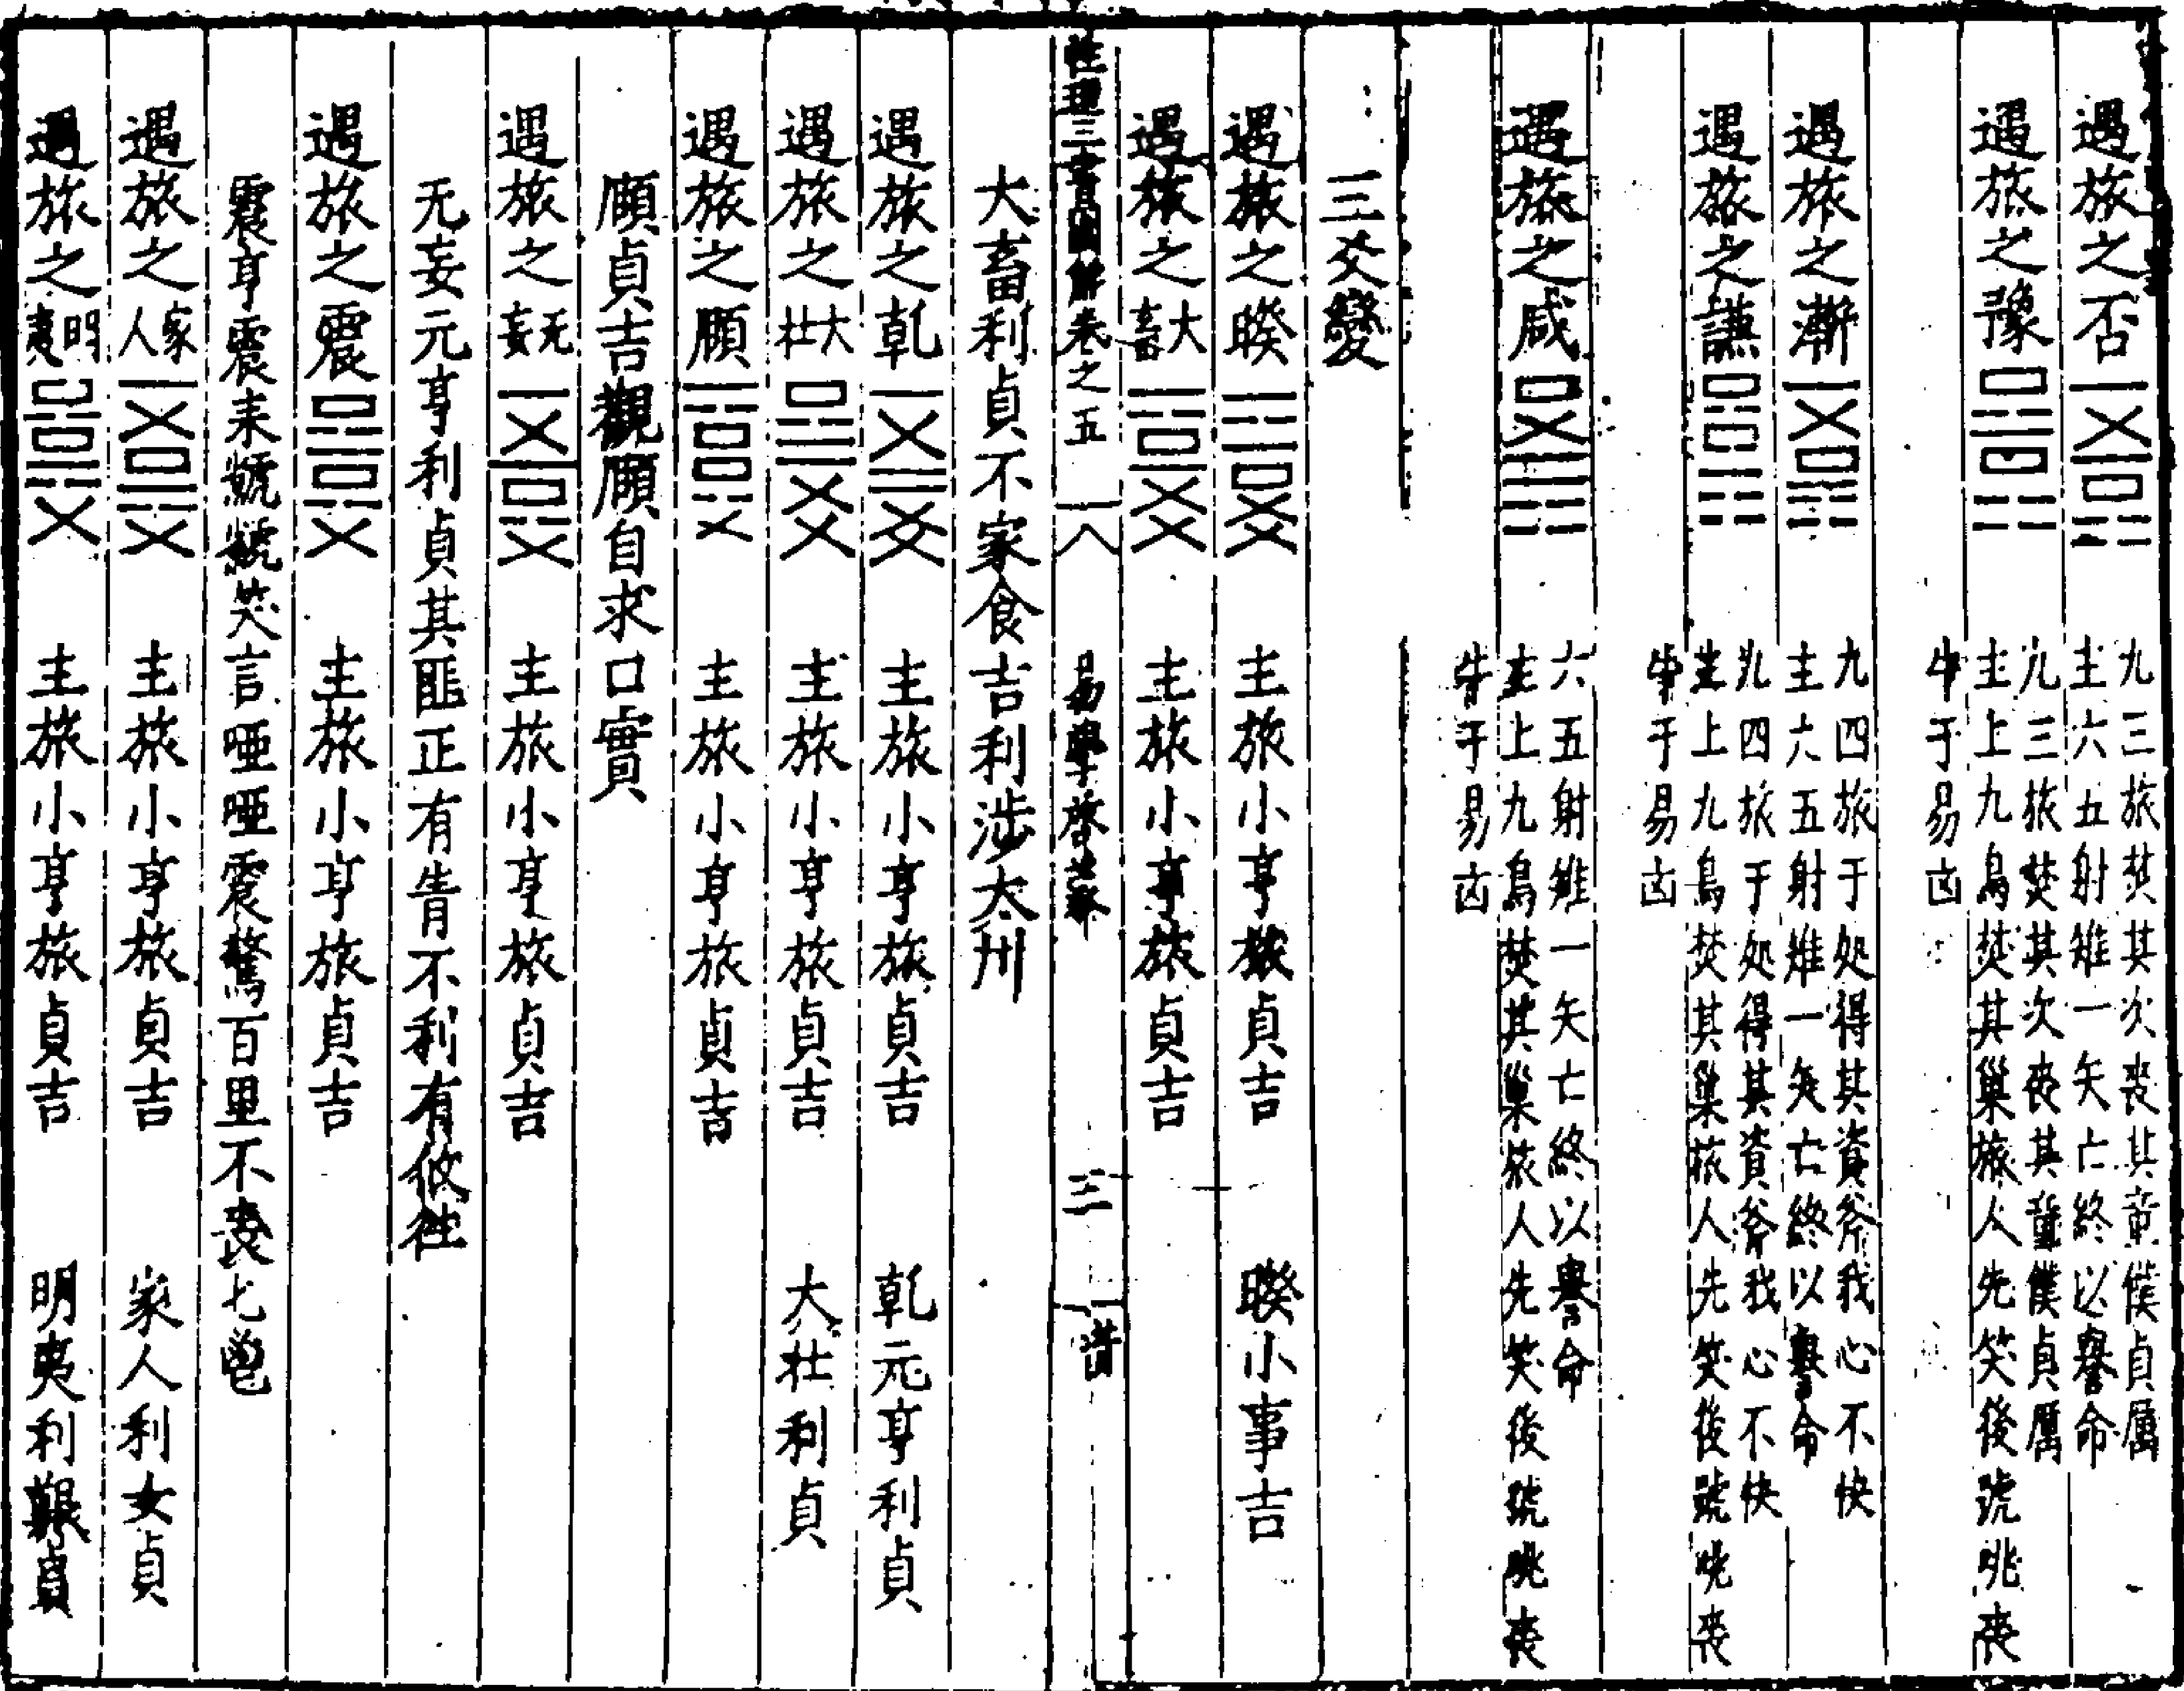 遇旅之否 九三旅焚其次丧其童僕貞厲
主六五射雉一矢亡終以譽命
遇旅之豫 九三旅焚其次丧其童僕貞厲
主上九鳥焚其巢旅人先笑後號咷丧
牛于易凶
遇旅之漸 九四旅于処得其資斧我心不快
主六五射雉一矢亡終以譽命
遇旅之謙 九四旅于処得其資斧我心不快
主上九鳥焚其巢旅人先笑後號咷丧
牛于易凶
遇旅之咸 六五射雉一矢亡終以譽命
主上九鳥焚其巢旅人先笑後號咷丧
牛于易凶
三爻變
遇旅之睽 主旅小亨旅貞吉 睽小事吉
遇旅之大畜 主旅小亨旅貞吉
性理三書圖解卷之五 一八 易學啓蒙 三
大畜利貞不家食吉利涉大川
遇旅之乹 主旅小亨旅貞吉 乹元亨利貞
遇旅之大壯 主旅小亨旅貞吉 大壯利貞
遇旅之頤 主旅小亨旅貞吉
頤貞吉觀頤自求口實
遇旅之无妄 主旅小亨旅貞吉
无妄元亨利貞其匪正有眚不利有攸往
遇旅之震 主旅小亨旅貞吉
震亨震来虩虩笑言啞啞震驚百里不丧匕鬯
遇旅之家人 主旅小亨旅貞吉 家人利女貞
遇旅之明夷 主旅小亨旅貞吉 明夷利艱貞